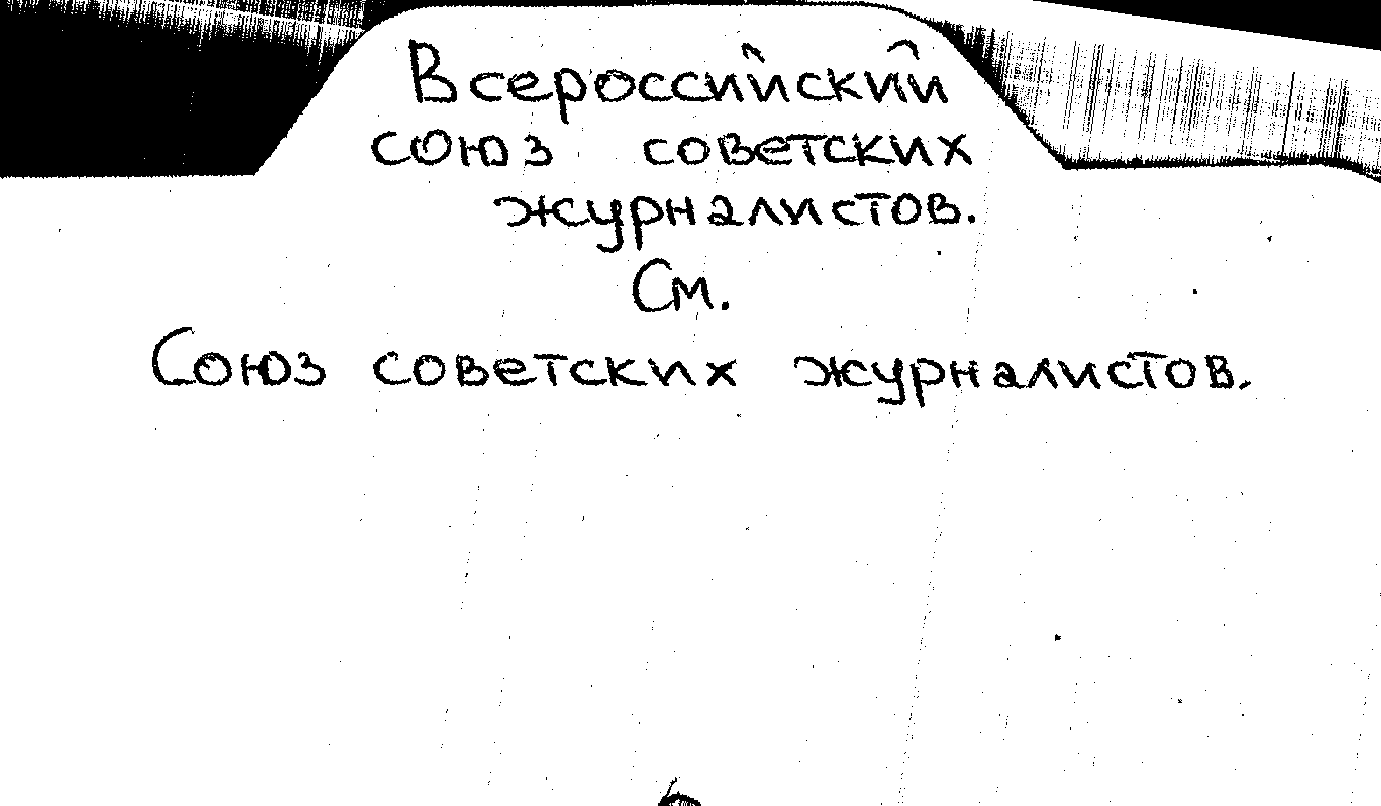 Всероссийский
союз советских
журналистов.
См.
Союз советских журналистов.